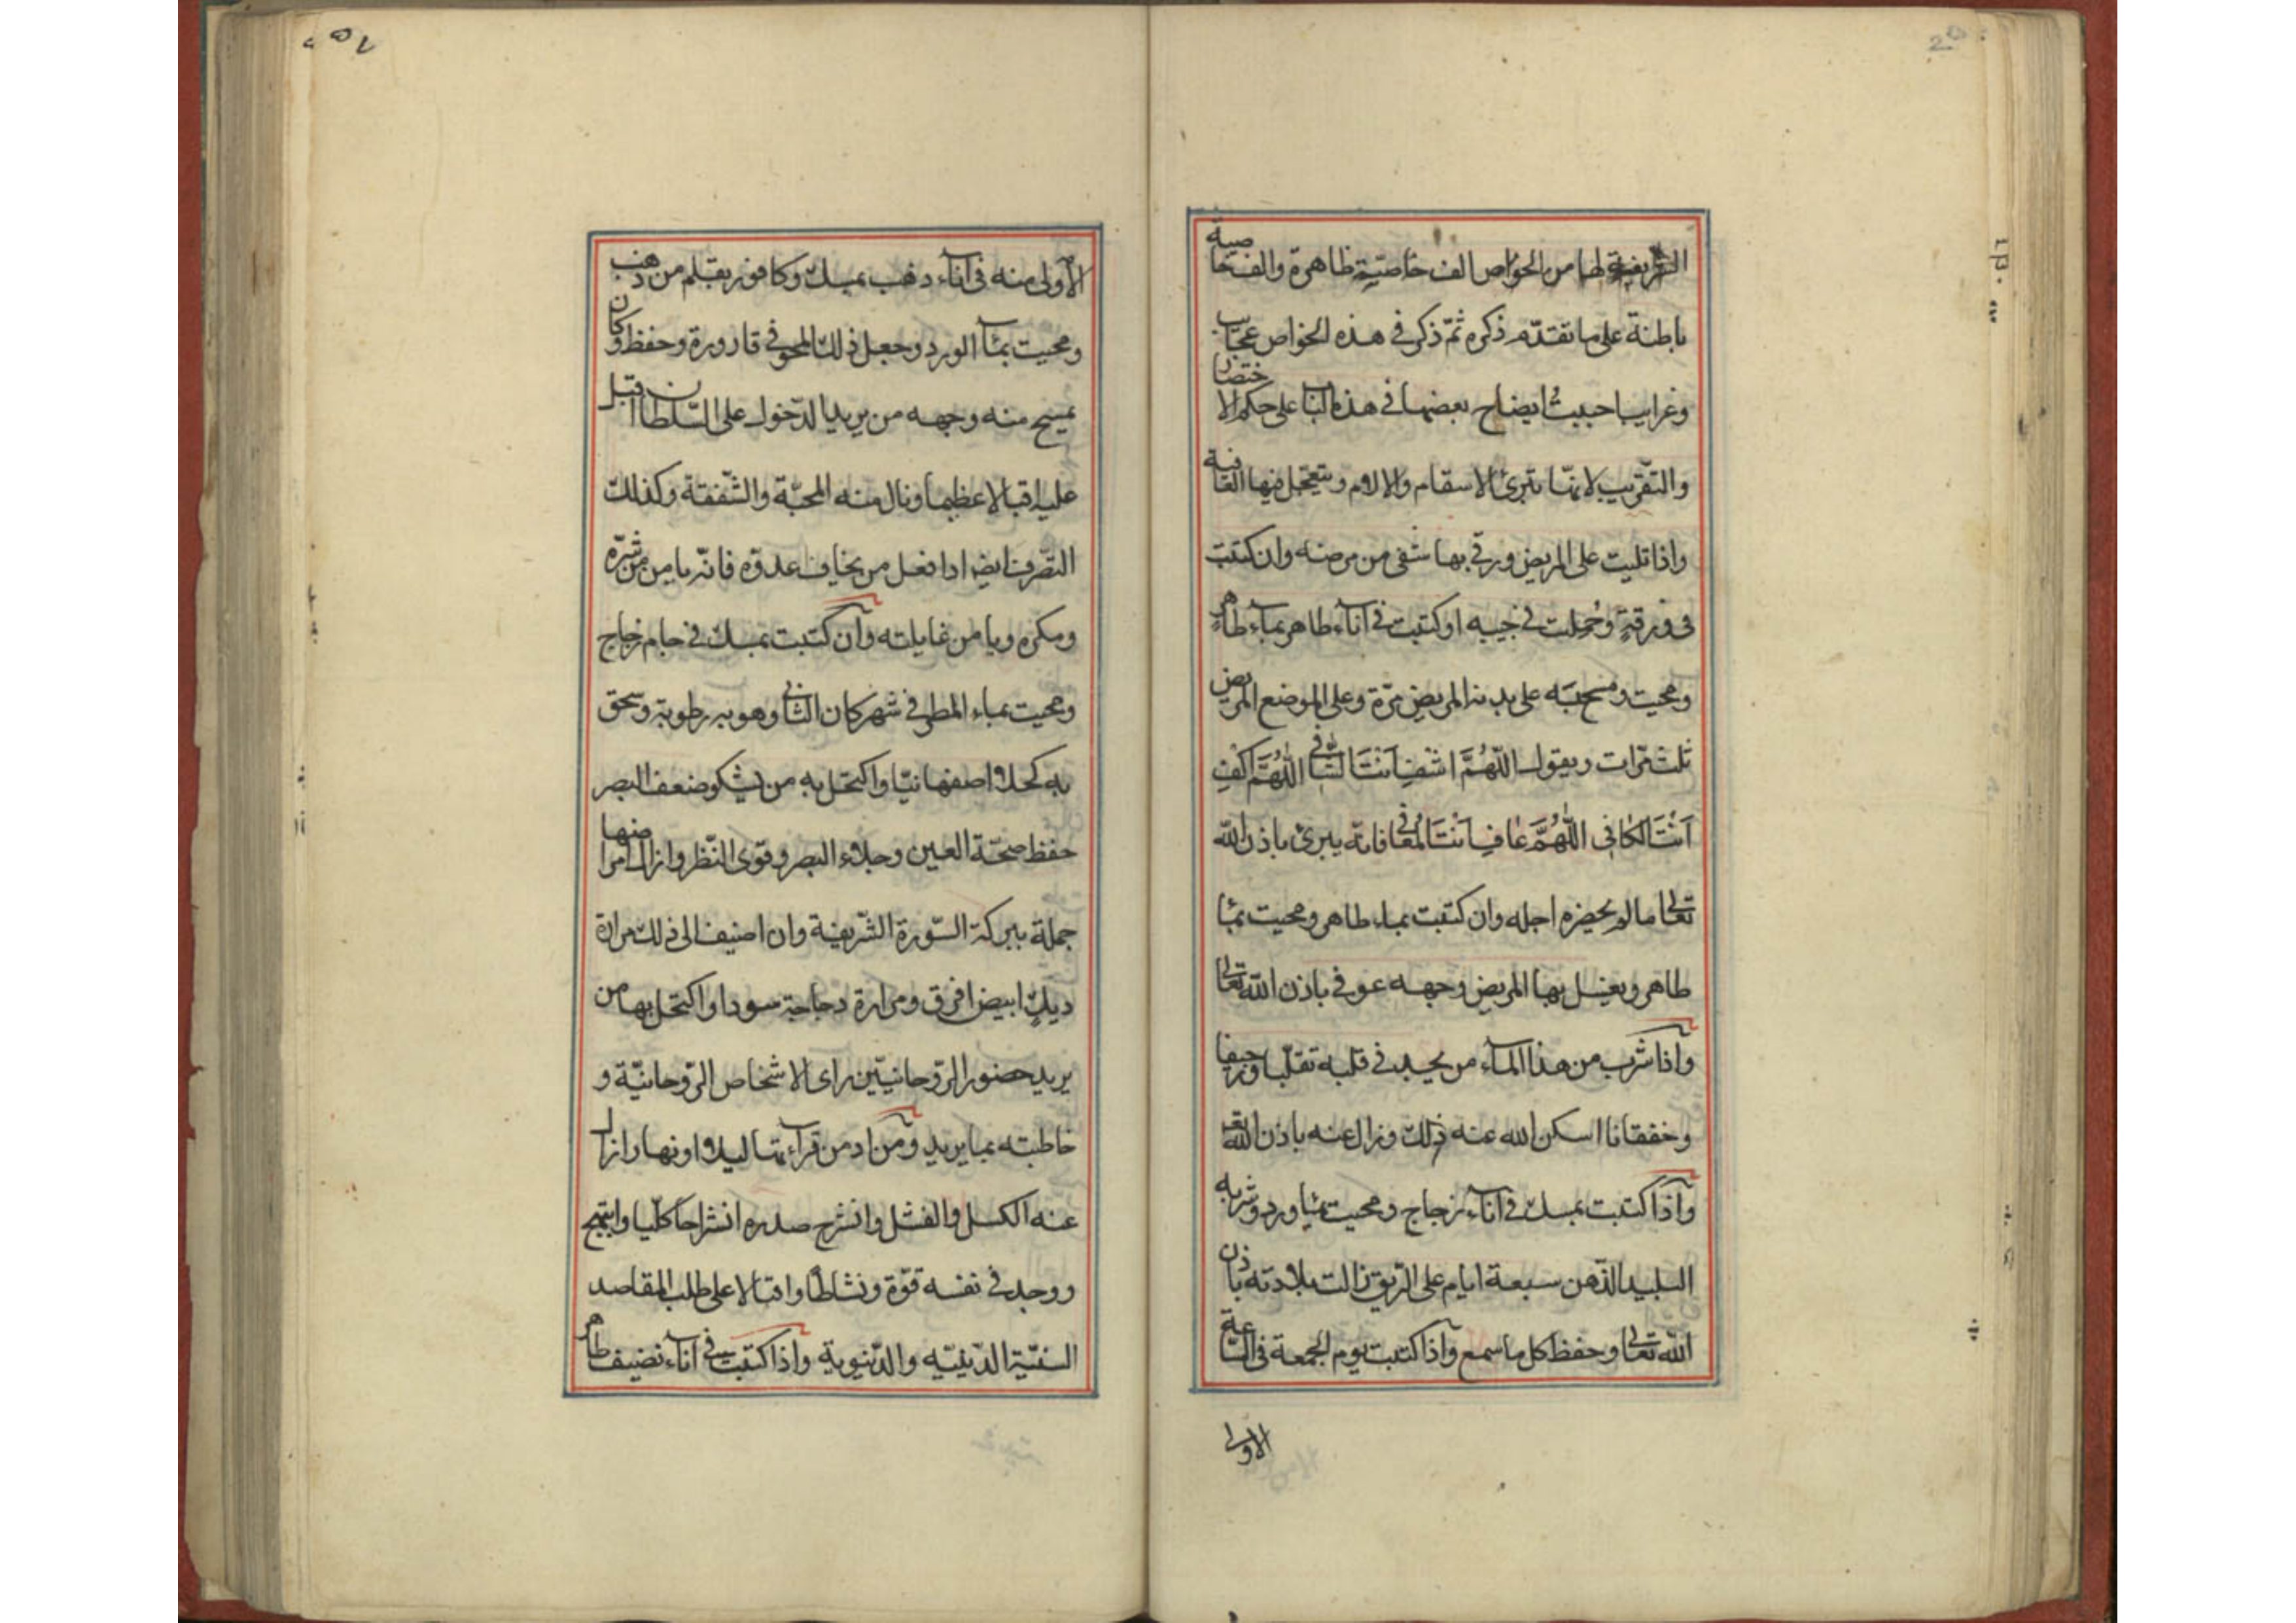 الشريفة لها من الخواص الف خاصّية ظاهرة والف خاصية
باطنة على ما تقدّم ذكره ثمّ ذكر في هذه الخواص عجايب
وغرايب احببتُ ايضاح بعضها في هذه الباب على حكم الاختصار
والتّقريب لانها تبرئ الاسقام والالام ويتعجّل فيها العافية
واذا تليت على المريض ورقي بها شفى من مرضه وان كتبت
في ورقةٍ وحُمِلت في جيبه او كتبت في آناء طاهر بماء طاهرٍ
ومحيت ومسح به على بدن المريض مرّة وعلى الموضع المريض
ثلث مرّات ويقول اللّهُمَّ اشفِ اَنْتَ الشّافي اللّهُمَّ اكْفِ
اَنْتَ الكافي اللّهُمَّ عافِ اَنْتَ المُعافي فانّه يبرئ باذن الله
تعالى ما لم يحضره اجله وان كتبت بماء طاهر ومحيت بماء
طاهر ويغسل بها المريض وجهه عوفي باذن الله تعالى
وآذا شرب من هذا الماء من يجد في قلبه تقلّبا ورجيفا
وخفقانا اسكن الله عنه ذلك وزال عنه باذن الله تع
وآذا كتبت بمسك في اناء زجاج ومحيت بماء ورد وشربه
البليد الذّهن سبعة ايام على الرّيق زالت بلادته باذن
الله تعالى وحفظ كل ما سمع وآذا كتبت يوم الجمعة في السّاعة
الاولى
الاولى منه في آناء ذهب بمسك وكافور بقلم من ذهب
ومحيت بماء الورد وجعل ذلك المحو في قارورة وحفظ وكان
يمسح منه وجهه من يريد الدّخول على السّلطان اقبل
عليه اقبالا عظيما ونال منه المحبّة والشّفقة وكذلك
التصّرف ايضا اذا فعل من يخاف عدوّه فانّه يامن من شرّه
ومكره ويامن غايلته وآن كتبت بمسك في جام زجاج
ومحيت بماء المطر في شهر كان الثاني وهو به رطوبة وسحق
به كحلا اصفهانيّا واكتحل به من يشكو ضعف البصر
حفظ صحّة العين وجلاء البصر وقوّى النّظر وازال امراضها
جملة ببركة السّورة الشّريفة وان اضيف الى ذلك مرارة
ديكٍ ابيض افرق ومرارة دجاجة سودا واكتحل بها من
يريد حضور الرّوحانيّين راى الاشخاص الرّوحانيّة و
خاطبته بما يريد ومن ادمن قراءتها ليلا او نهارا زال
عنه الكسل والفشل وانشرح صدره انشراحا كلّيا وابتهج
ووجد في نفسه قوّة ونشاطا واقبالا على طلب المقاصد
السنيّة الدّينيّه والدّنيوية وآذا كتبت في آناء نضيف طاهر